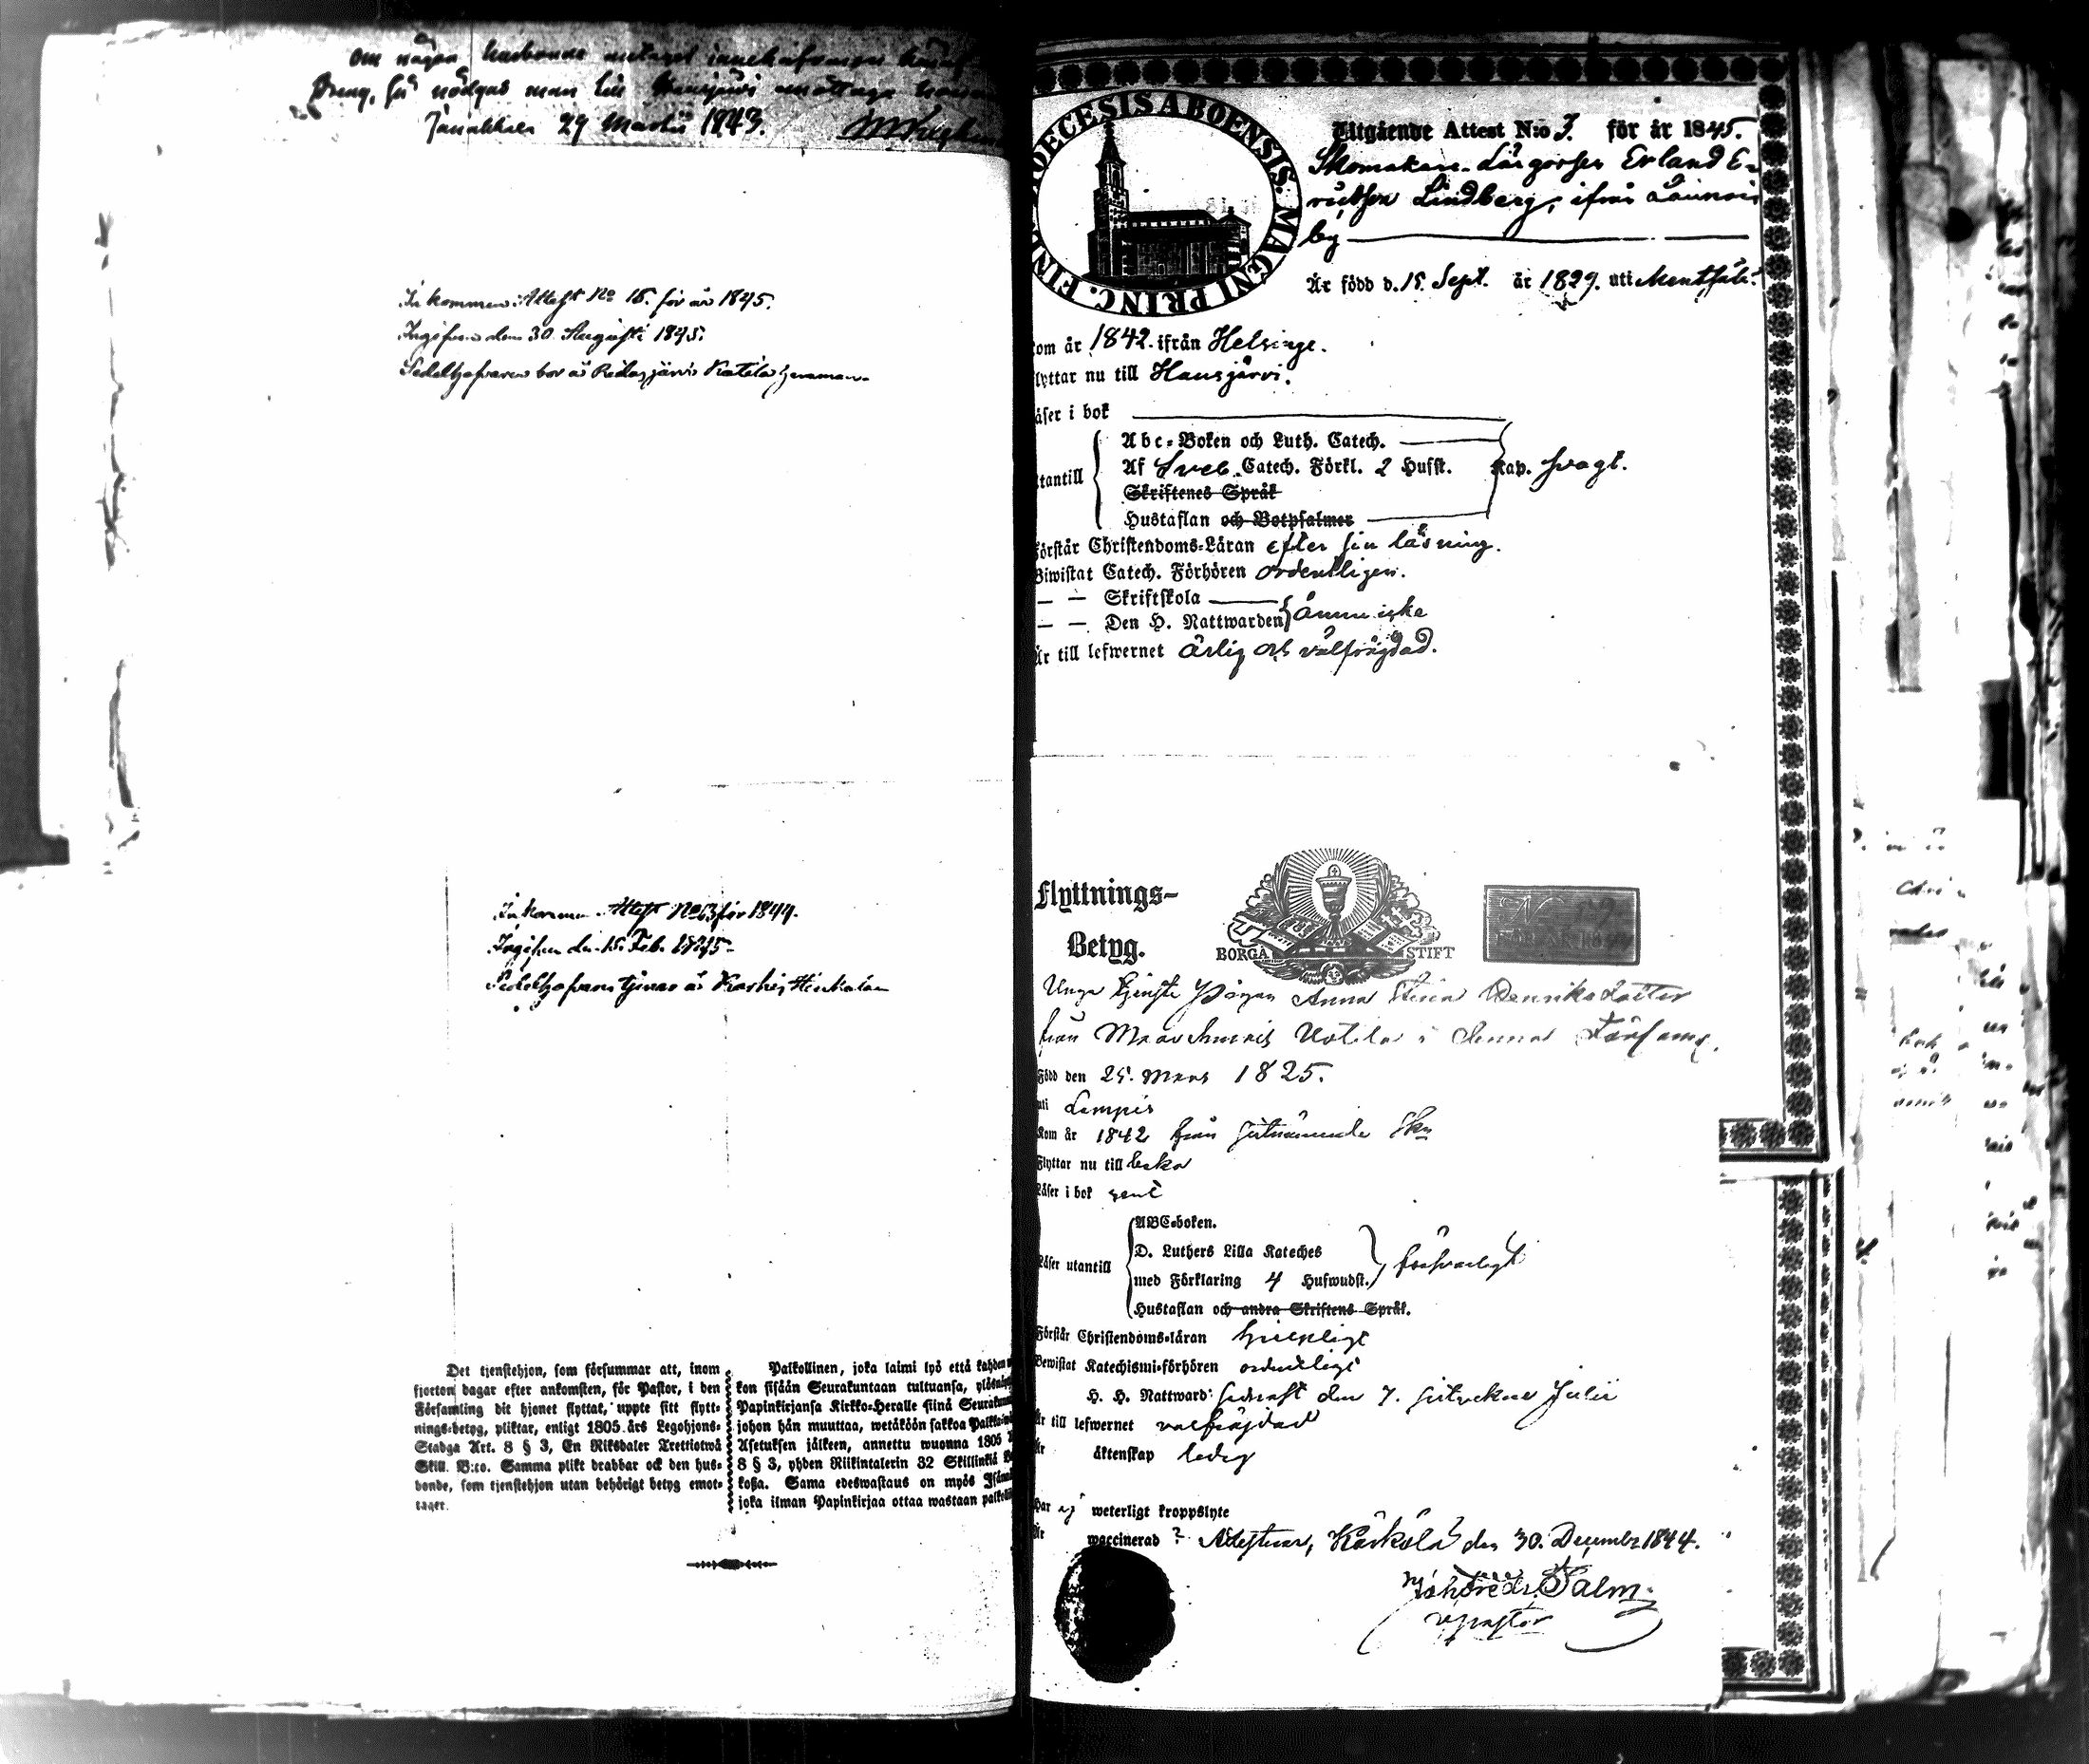 om någon husbonde antaget innehafvaren
så nödgas man till Hausjärvi mottaga
Janakkala 29 Martii 1843.
Inkommen Attest No 16. för år 1845.
Ingifven den 30 Augusti 1845.
Sedelhafvaren bor å Ridasjärvi Katila hemman.
Inkommen Attest No 63 för 1844.
Ingifven den 15. Feb. 1845.
Sedelhafvaren tjenar å Karhis
Det tjenstehjon, som försummar att, inom
fjorton dagar efter ankomsten, för Pastor, i den
Församling dit hjonet flyttat, uppte sitt flytt-
nings-betyg, pliktar, enligt 1805 års Legohjons-
Stadga Art. 8 § 3, En Riksdaler Trettiotwå
Skill. B:co. Samma plikt drabbar ock den hus-
bonde, som tjenstehjon utan behörigt betyg emot-
tager.
Palkollinen, joka laimi lyö että kahden
kon sisään Seurakuntaan tultuansa,
Papinkirjansa Kirkko-Heralle siinä
johon hän muuttaa, wetäköön sakkoa
Asetuksen jälkeen, annettu wuonna 1805
8 § 3, yhden Riikintalerin 32 Skillinkiä
koßa. Sama edeswastaus on myös
joka ilman Papinkirjaa ottaa wastaan
DIOECESIS ABOENSIS. MAGNI PRINC.
Utgående Attest N:o 3. för år 1845.
Skomakare-Lärgosser Erland E-
riksson Lindberg, ifrån
by
Är född d. 15 Sept. år 1829. uti Mentsälä
om år 1842. ifrån Helsinge.
lyttar nu till Hausjärvi.
äser i bok
tantill
Abc-Boken och Luth. Catech.
Af Sveb. Catech. Förkl. 2 Hufst. Kap. svagt.
Skriftenes Språk
Hustaflan och Botpsalmer
Förstår Christendoms-Läran efter sin läsning.
Biwistat Catech. Förhören ordentligen.
— — Skriftskola
— — Den H. Nattwarden ännu icke
Är till lefwernet ärlig och välfrägdad.
Flyttnings-
Betyg.
BORGÅ STIFT
Unga tjenste Pigan Anna Stina Henriksdotter
från Uotila i denna Församl.
Född den 25. Mars 1825.
uti Lampis
Kom år 1842 från
Flyttar nu till
Läser i bok rent
Läser utantill
ABC-boken.
D. Luthers Lilla Kateches
med Förklaring 4 Hufwudst. försvarligt
Hustaflan och andra Skriftens Språk.
Förstår Christendoms-läran hjelpligt
Bewistat Katechismi-förhören ordentligt
H. H. Nattward: sednast den 7. sistvekne Julii
Är till lefwernet välfrägdad
Är äktenskap ledig
Har ej weterligt kroppslyte
Är waccinerad? Attesterar, Kärkölä den 30. December 1844.
Joh Fredr. Palm.
v pastor